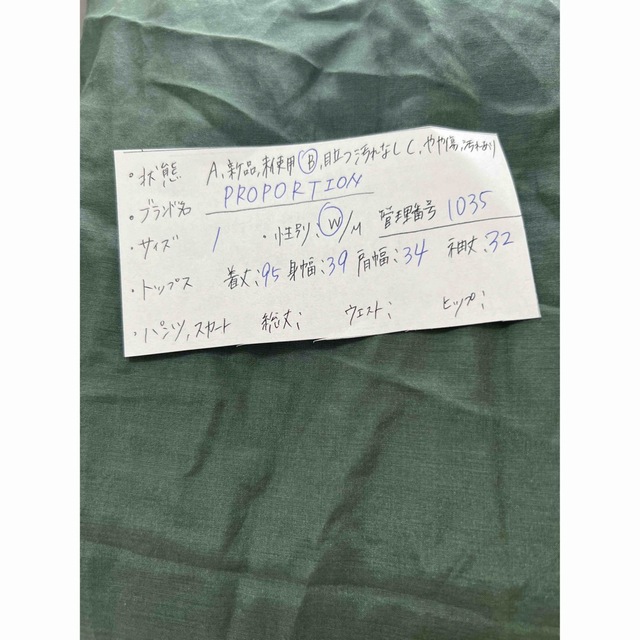 ・状態 A、新品,未使用 B、目立つ汚れなし C、やや傷,汚れあり
・ブランド名 PROPORTION
・サイズ 1 ・性別、W/M 管理番号 1035
・トップス 着丈;95 身幅;39 肩幅;34 袖丈;32
・パンツ,スカート 総丈; ウエスト; ヒップ;